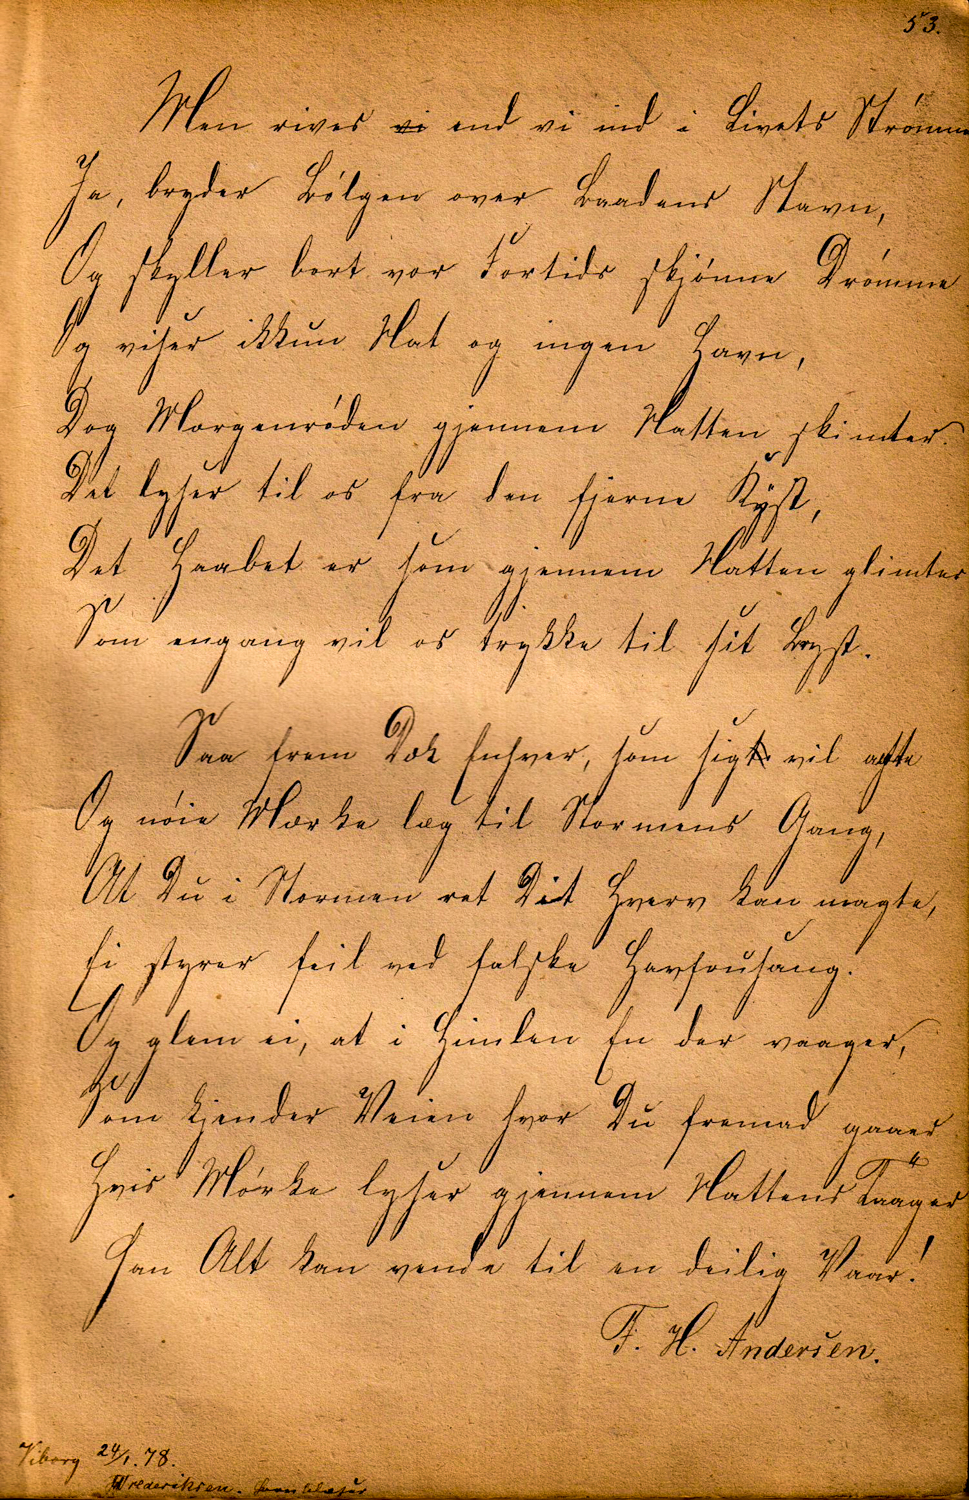 53.
Men rives vi end vi ind i Livets Strömme
Ja, bryder Bólgen over Baadens Stavn,
Og skyller bort vor Fortids skjónne Drómme
Og viser ikkun Nat og ingen Havn,
Dog Morgenróden gjennem Natten skimter.
Det lyser til os fra den fjerne Kyst,
Det Haabet er som gjennem Natten glimter
Som engang vil os trykke til sit Bryst.
Saa frem Dok Enhver, som sigt vil agte
Og nóie Mærke læg til Stormens Gang,
At Du i Stormen ret Dit Hverv kan magte,
Ei styrer feil ved falske Havfrusang.
Og glem ei, at i Himlen En der vaager,
Som kjender Veien hvor Du fremad gaaer
Hvis Mórke lyser gjennem Nattens Taager
Han Alt kan vende til en deilig Vaar!
F. H. Andersen.
Viborg 24/1. 78.
Frederiksen.